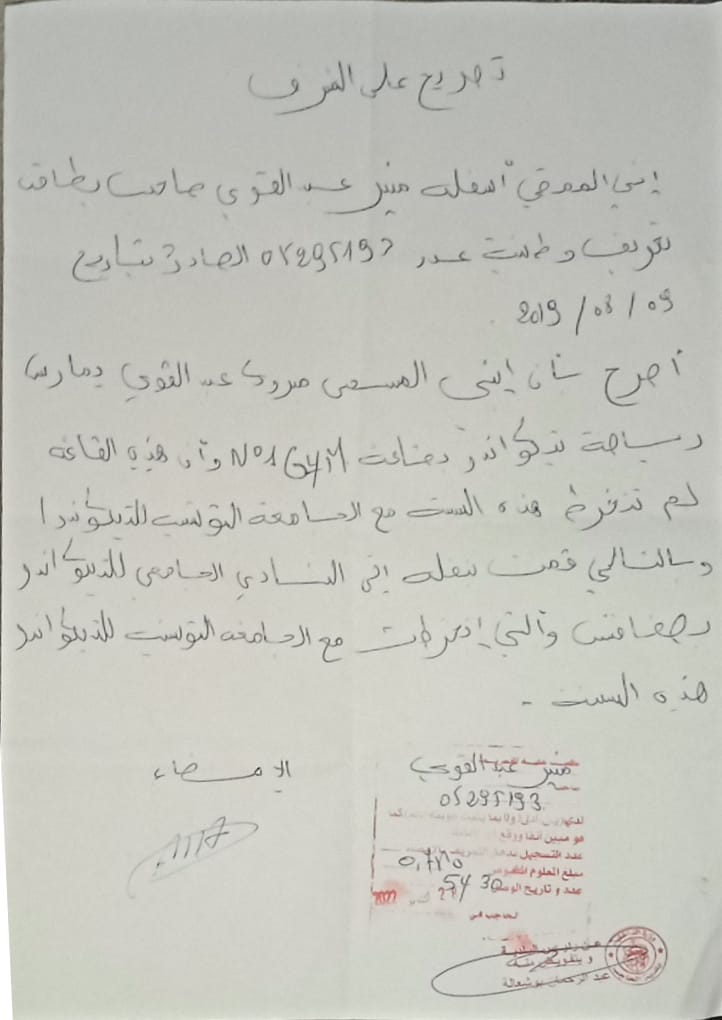 تصريح على الشرف
إني الممضي أسفله منير عبد القوي صاحب بطاقة
تعريف وطنية عدد 05295193 الصادرة بتاريخ
2019 / 08 / 09
أصرح بأن إبني المسمى مبروك عبد القوي يمارس
رياضة تيكواندو بقاعة N°1 GYM وأن هذه القاعة
لم تنخرط هذه السنة مع الجامعة التونسية للتيكواندو
وبالتالي قمت بنقله إلى النادي الجامعي للتيكواندو
بصفاقس والتي إنخرطت مع الجامعة التونسية للتيكواندو
هذه السنة -
الإمضاء
منير عبد القوي
05295193
هو مبين آنفا ووقع
عدد التسجيل
مبلغ المعلوم
عدد و تاريخ الوصل 5430
عن رئيس البلدية
و بتفويض منه
عبد الرحمان بوشعالة